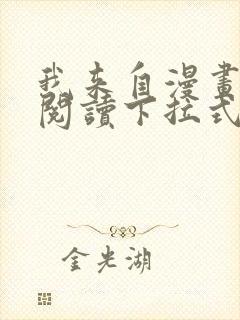 我来自漫畫
閱讀下拉式
金光湖